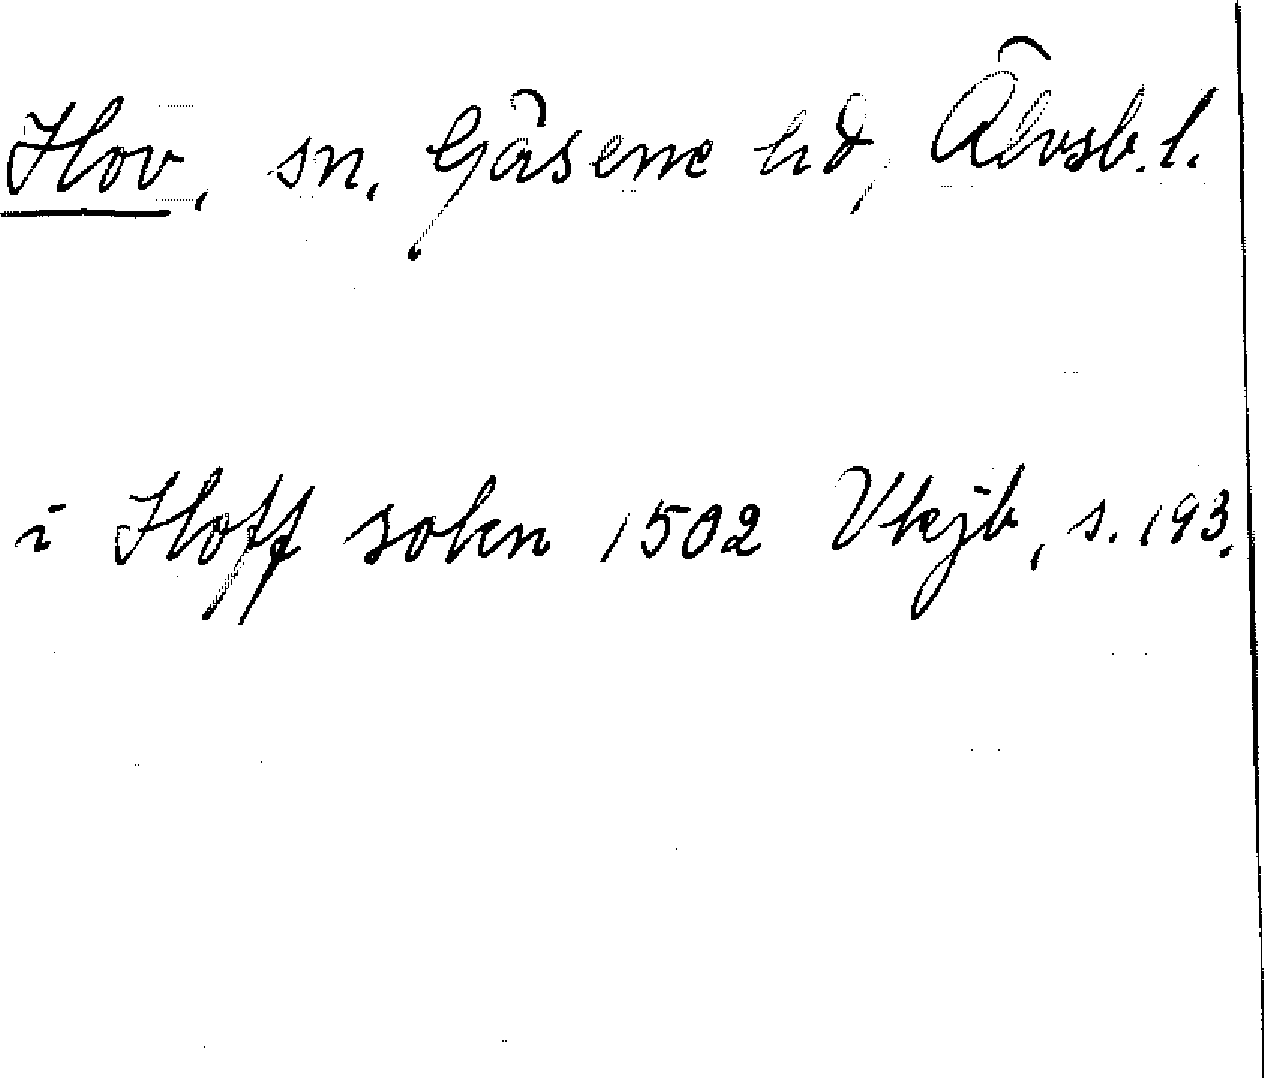 Hov, sn. Gäsene hd, Älvsb. l.
i Hoff sokn 1502 Vkjb, s. 193.